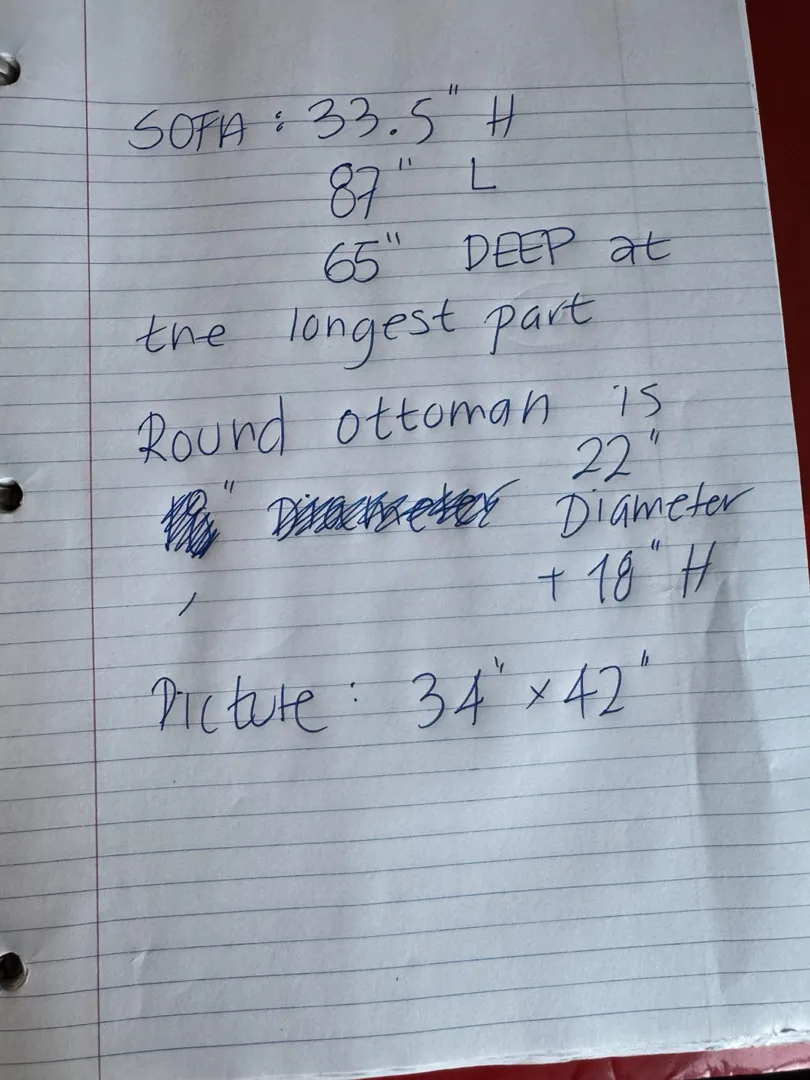 SOFA : 33.5" H
87" L
65" DEEP at
the longest part
Round ottoman is
22"
" Diameter
+ 18" H
Picture : 34" x 42"